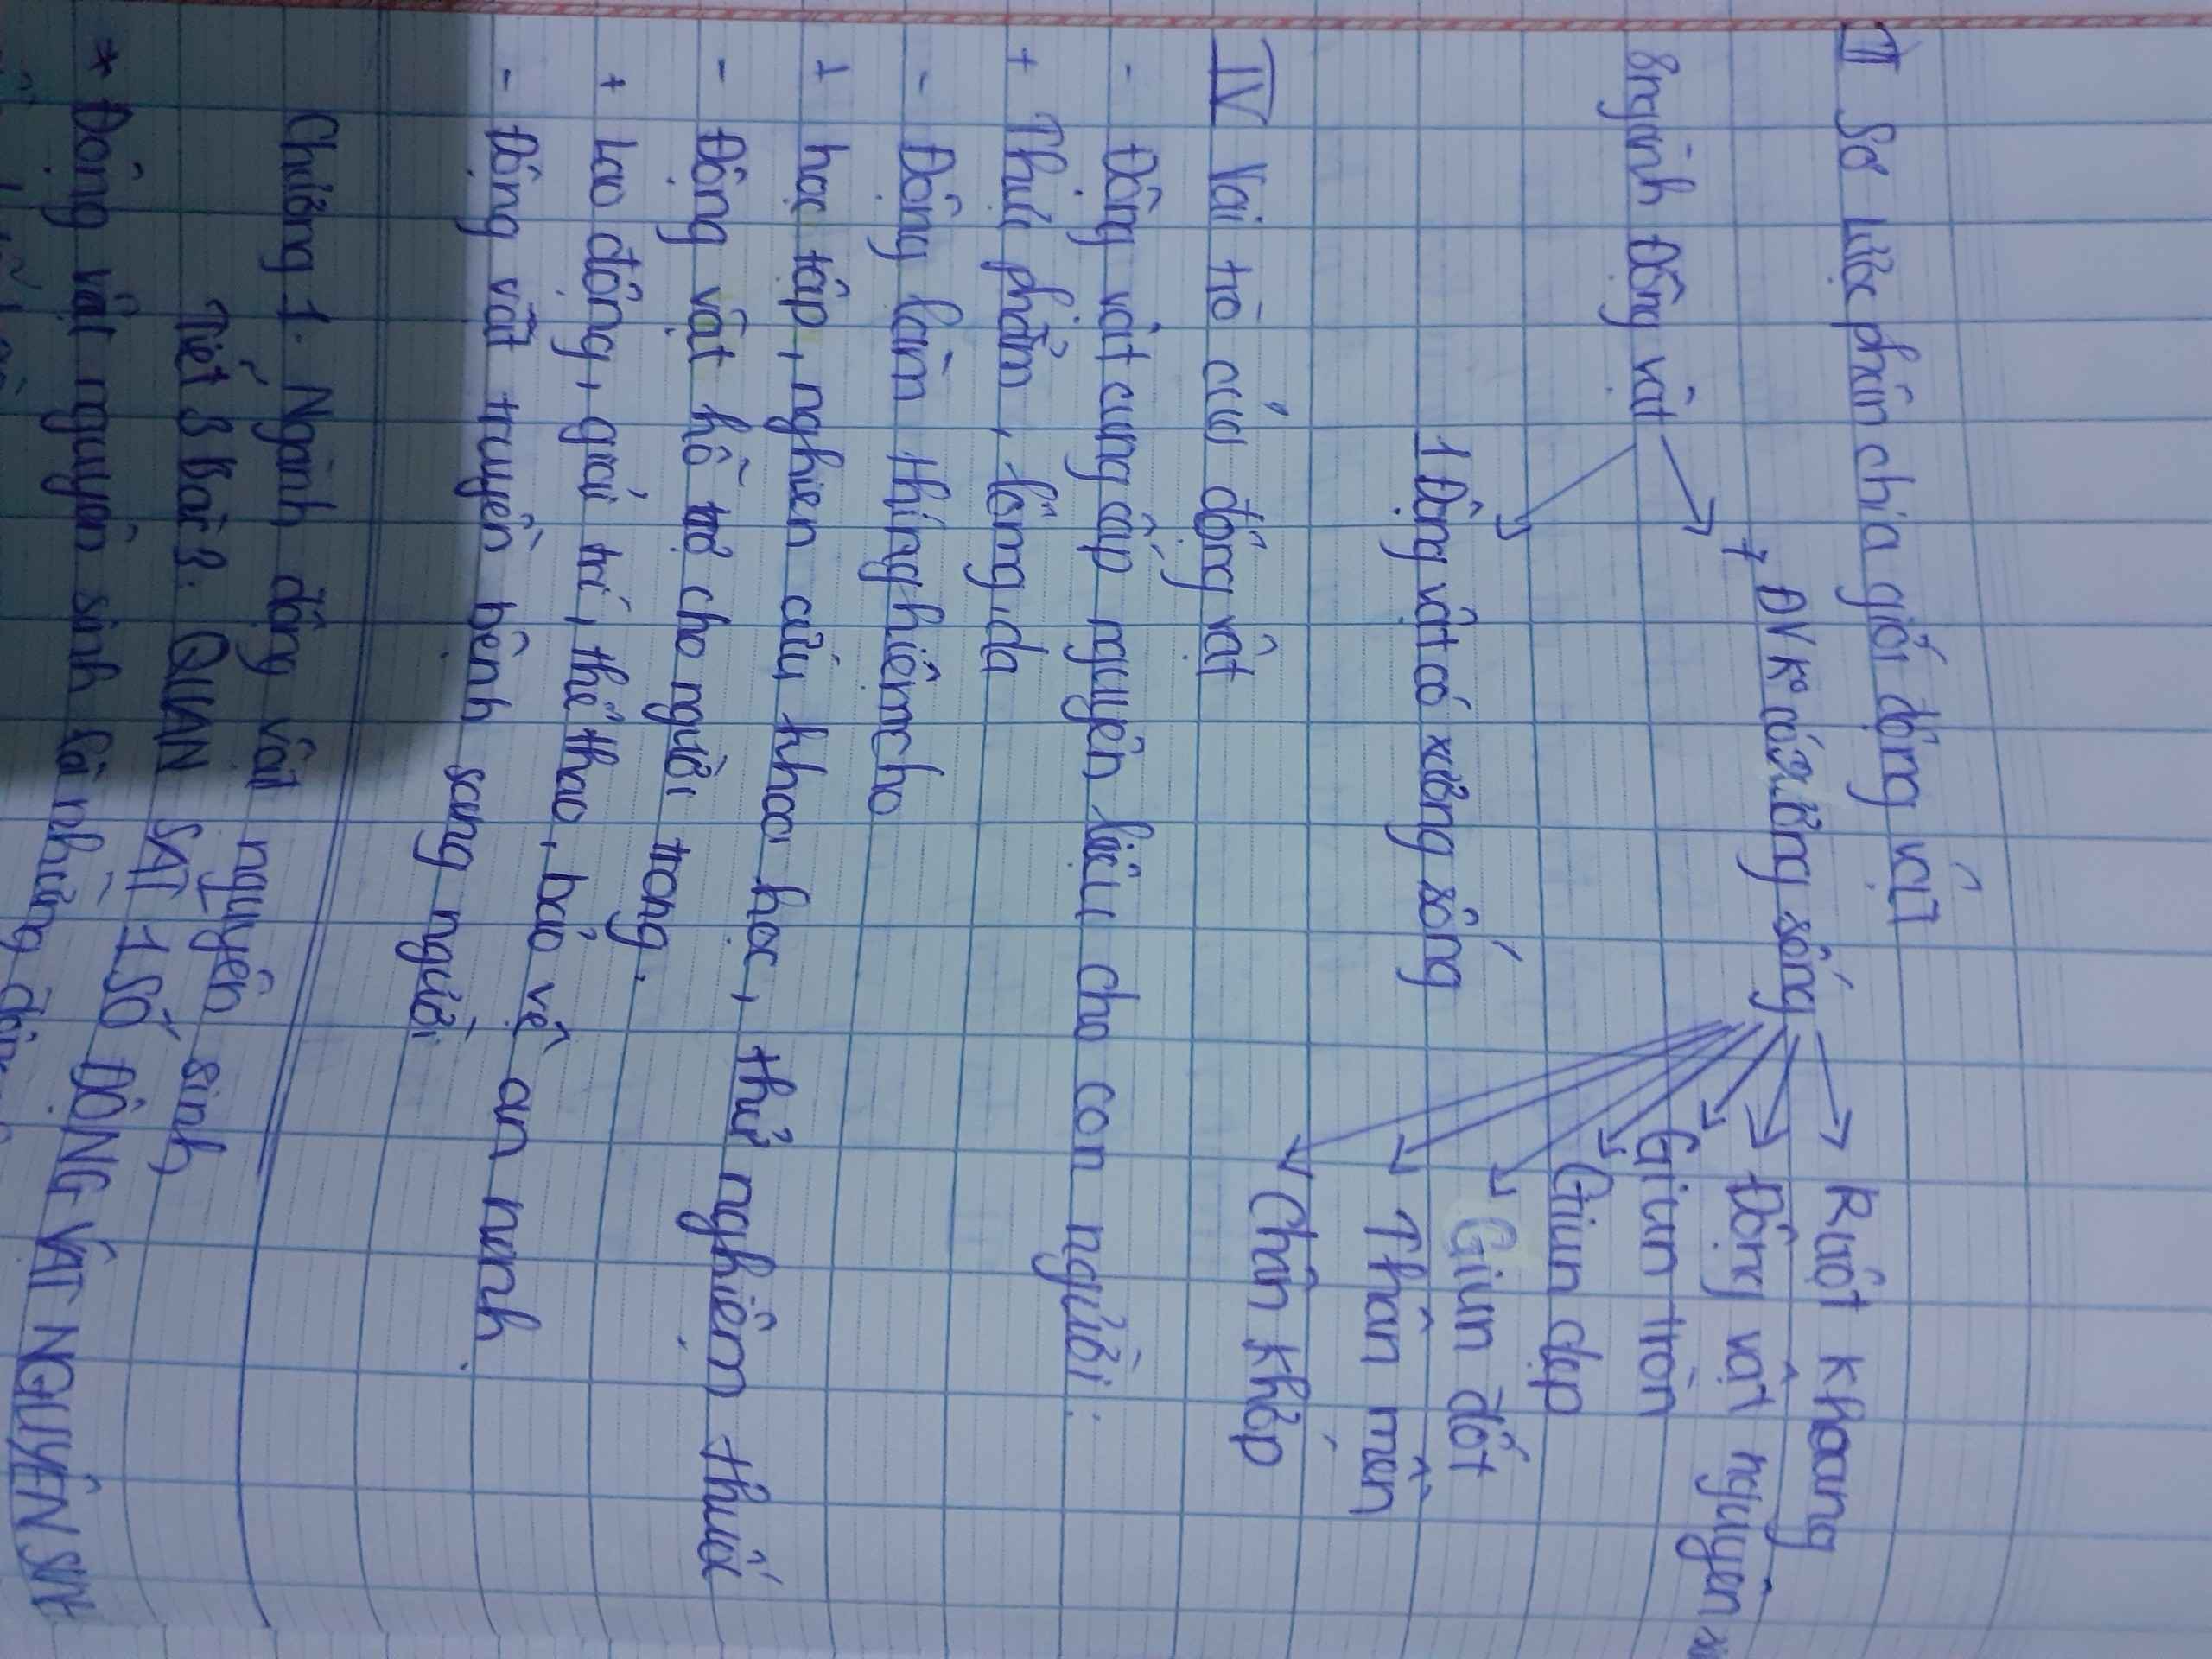 III Sơ lược phân chia giới động vật
8 ngành Động vật
+ ĐV K° có xương sống
Ruột Khoang
Động vật nguyên
Giun tròn
Giun dẹp
Giun đốt
Thân mềm
Chân Khớp
1 Động vật có xương sống
IV Vai trò của động vật
- Động vật cung cấp nguyên liệu cho con người:
+ Thực phẩm, lông, da
- Động làm thí nghiệm cho
+ học tập, nghiên cứu khoa học, thử nghiệm thuốc
- Động vật hỗ trợ cho người trong.
+ Lao động, giải trí, thể thao, bảo vệ an ninh.
- Động vật truyền bệnh sang người
Chương 1. Ngành động vật nguyên sinh
Tiết 3 Bài 3. QUAN SÁT 1 SỐ ĐỘNG VẬT NGUYÊN SINH
* Động vật nguyên sinh là những